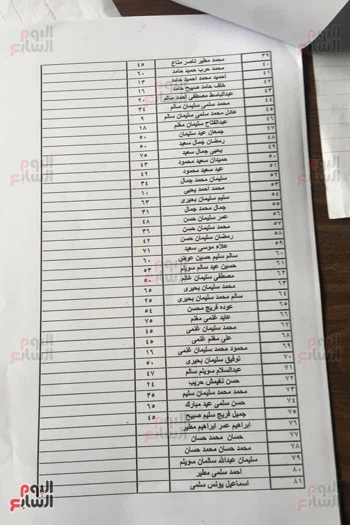 ٣٩ محمد مطير ناصر مناع ٤٥
٤٠ محمد حرب حميد حامد ٦٠
٤١ احميد محمد احميد حامد ١٣
٤٢ خلف حامد صبيح حامد ١٦
٤٣ عبدالباسط مصطفى احمد سالم ٢٠
٤٤ محمد سلمى سليمان سالم ٣٤
٤٥ عادل محمد سلمى سليمان سالم ٩
٤٦ عبدالفتاح سليمان مغنم ١٨
٤٧ جمعان عيد سليمان ٥٠
٤٨ رمضان جمال سعيد ٥٠
٤٩ يحيى جمال سعيد ٧٥
٥٠ حميدان سعيد محمود ٤٣
٥١ عيد سعيد محمود ٤٢
٥٢ سليمان محمد جمال ٣٤
٥٣ محمد احمد يحيى ١٠
٥٤ سليم سليمان بحيرى ٦٣
٥٥ جمال محمد جمال ٣١
٥٦ عمر سليمان حسن ٤٨
٥٧ محمد سليمان حسن ٣٦
٥٨ رمضان سليمان حسن ٤٢
٥٩ علاء موسى سعيد ٧١
٦٠ سالم سليم حسين عوض ٦٠
٦١ حسين عيد سالم سويلم ٥٣
٦٢ مصطفى سليمان غانم ٥٠
٦٣ محمد سليمان بحيرى ٦٥
٦٤ سالم محمد سليمان بحيرى ٢٥
٦٥ عوده فريج محسن ٥٤
٦٦ عايد غنمى مغنم ٧٥
٦٧ محمد سليمان غنمى ٤٥
٦٨ على مغنم غنمى ٥٤
٦٩ محمود محمد سليمان غنمى ١٦
٧٠ توفيق سليمان بحيرى ٥٠
٧١ عبدالسلام سويلم سالم ٤٧
٧٢ حسن نغيمش حريب ٢٤
٧٣ محمد محمد سليمان سليم ٣٥
٧٤ حسن سلمى عيد مبارك ٦٥
٧٥ جميل فريج سليم صبيح ٤٥
٧٦ ابراهيم عمر ابراهيم مطير
٧٧ حسان محمد حسان
٧٨ محمد حسان محمد حسان
٧٩ سليمان عبدالله سالمان سويلم
٨٠ احمد سلمى مطير
٨١ اسماعيل يونس سلمى
اليوم السابع